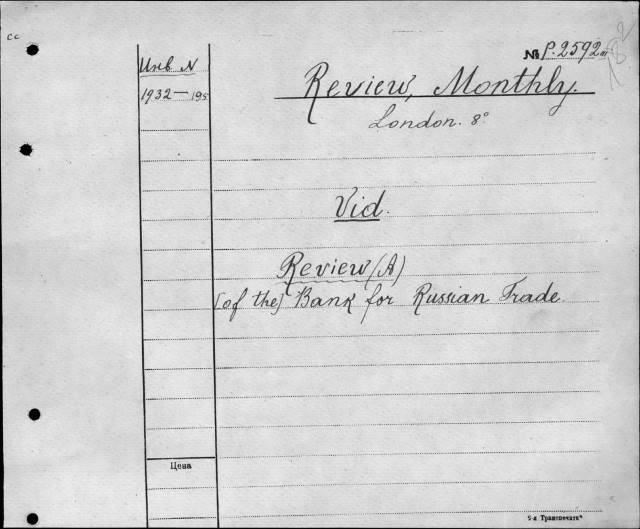 cc
№ P.2592
182
Инв N
1932—195
Review, Monthly.
London. 8°
Vid.
Review (A)
[of the] Bank for Russian Trade.
Цена
5-я Транспечать"